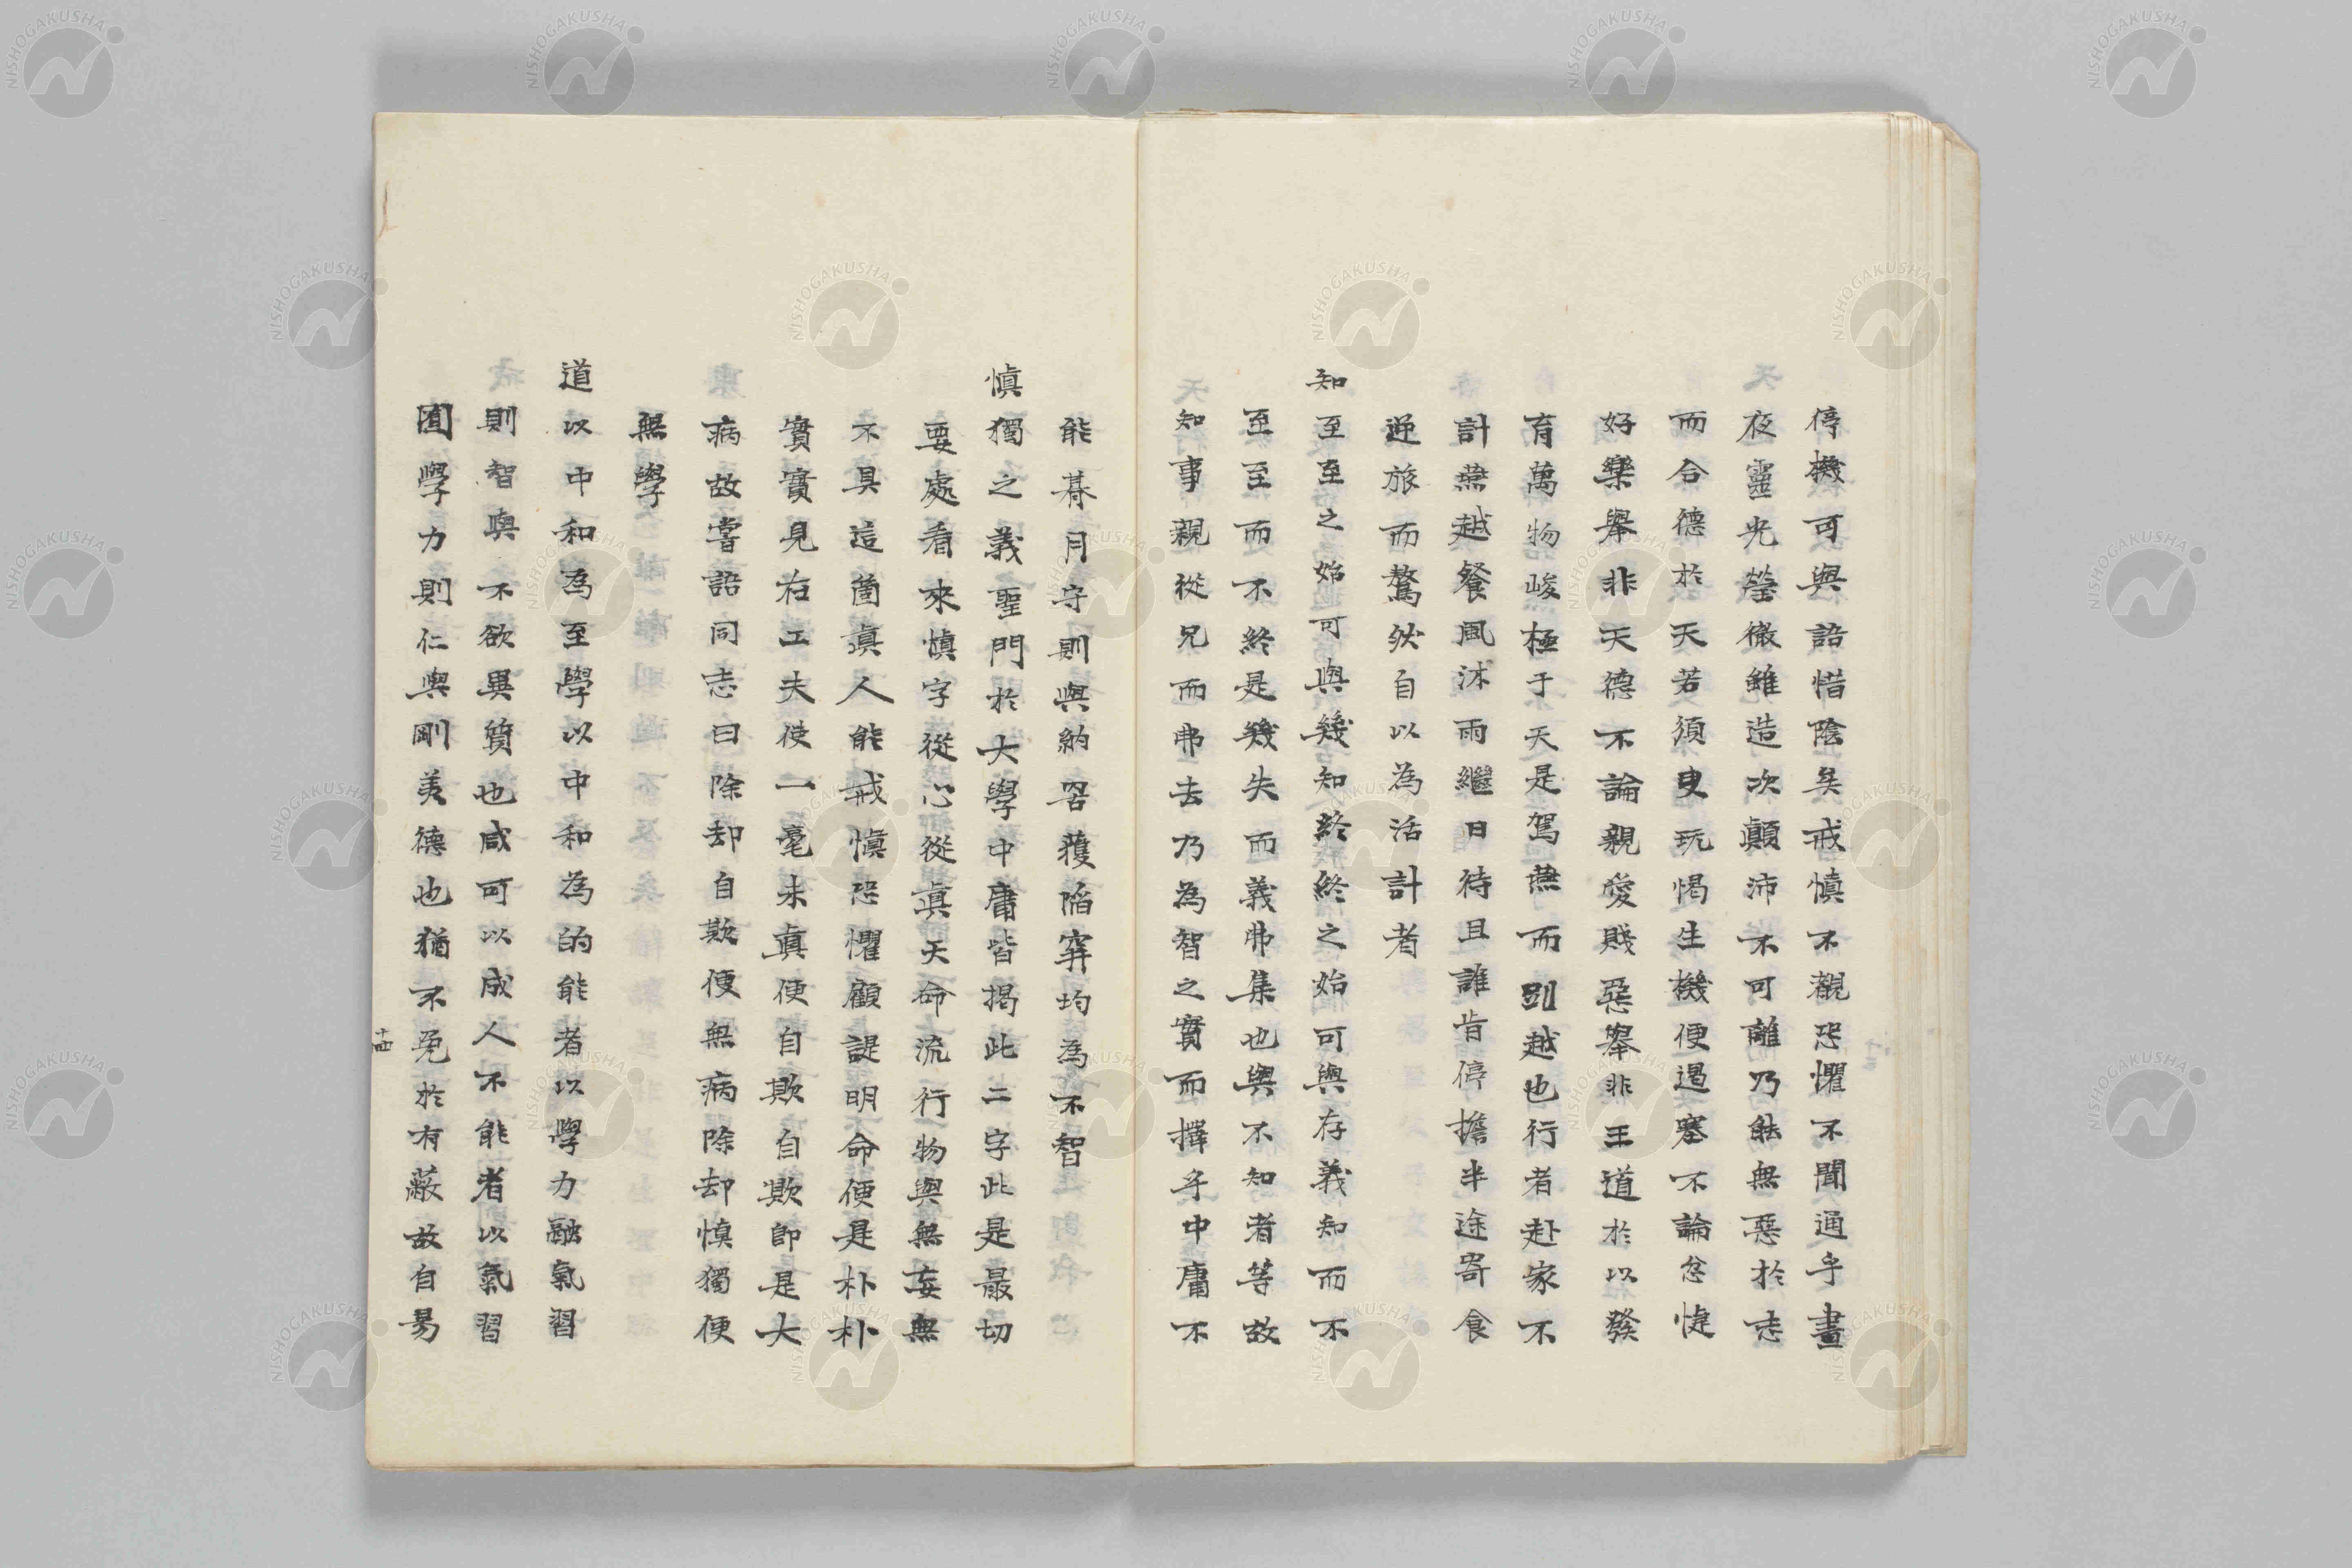 停機可與語惜陰矣戒慎不覩恐懼不聞通乎晝
夜靈光瑩徹雖造次顛沛不可離乃能無惡於志
而合德於天若須叟玩愒生機便遏塞不論忿懥
好樂舉非天德不論親愛賤惡舉非王道於以發
育萬物峻極于天是駕燕而別越也行者赴家不
計燕越餐風沐雨繼日待旦誰肯停擔半途寄食
逆旅而驁然自以為活計者
知至至之始可與幾知終終之始可與存義知而不
至至而不終是幾失而義弗集也與不知者等故
知事親從兄而弗去乃為智之實而擇乎中庸不
能朞月守則與納罟擭陷穽均為不智
慎獨之義聖門於大學中庸皆揭此二字此是最切
要處看來慎字從心從真天命流行物與無妄無
不具這箇真人能戒慎恐懼顧諟明命便是朴朴
實實見在工夫使一毫未真便自欺自欺即是大
病故嘗語同志曰除却自欺便無病除却慎獨便
無學
道以中和為至學以中和為的能者以學力融氣習
則智與不欲異質也咸可以成人不能者以氣習
囿學力則仁與剛美德也猶不免於有蔽故自昜
十四
NISHOGAKUSHA